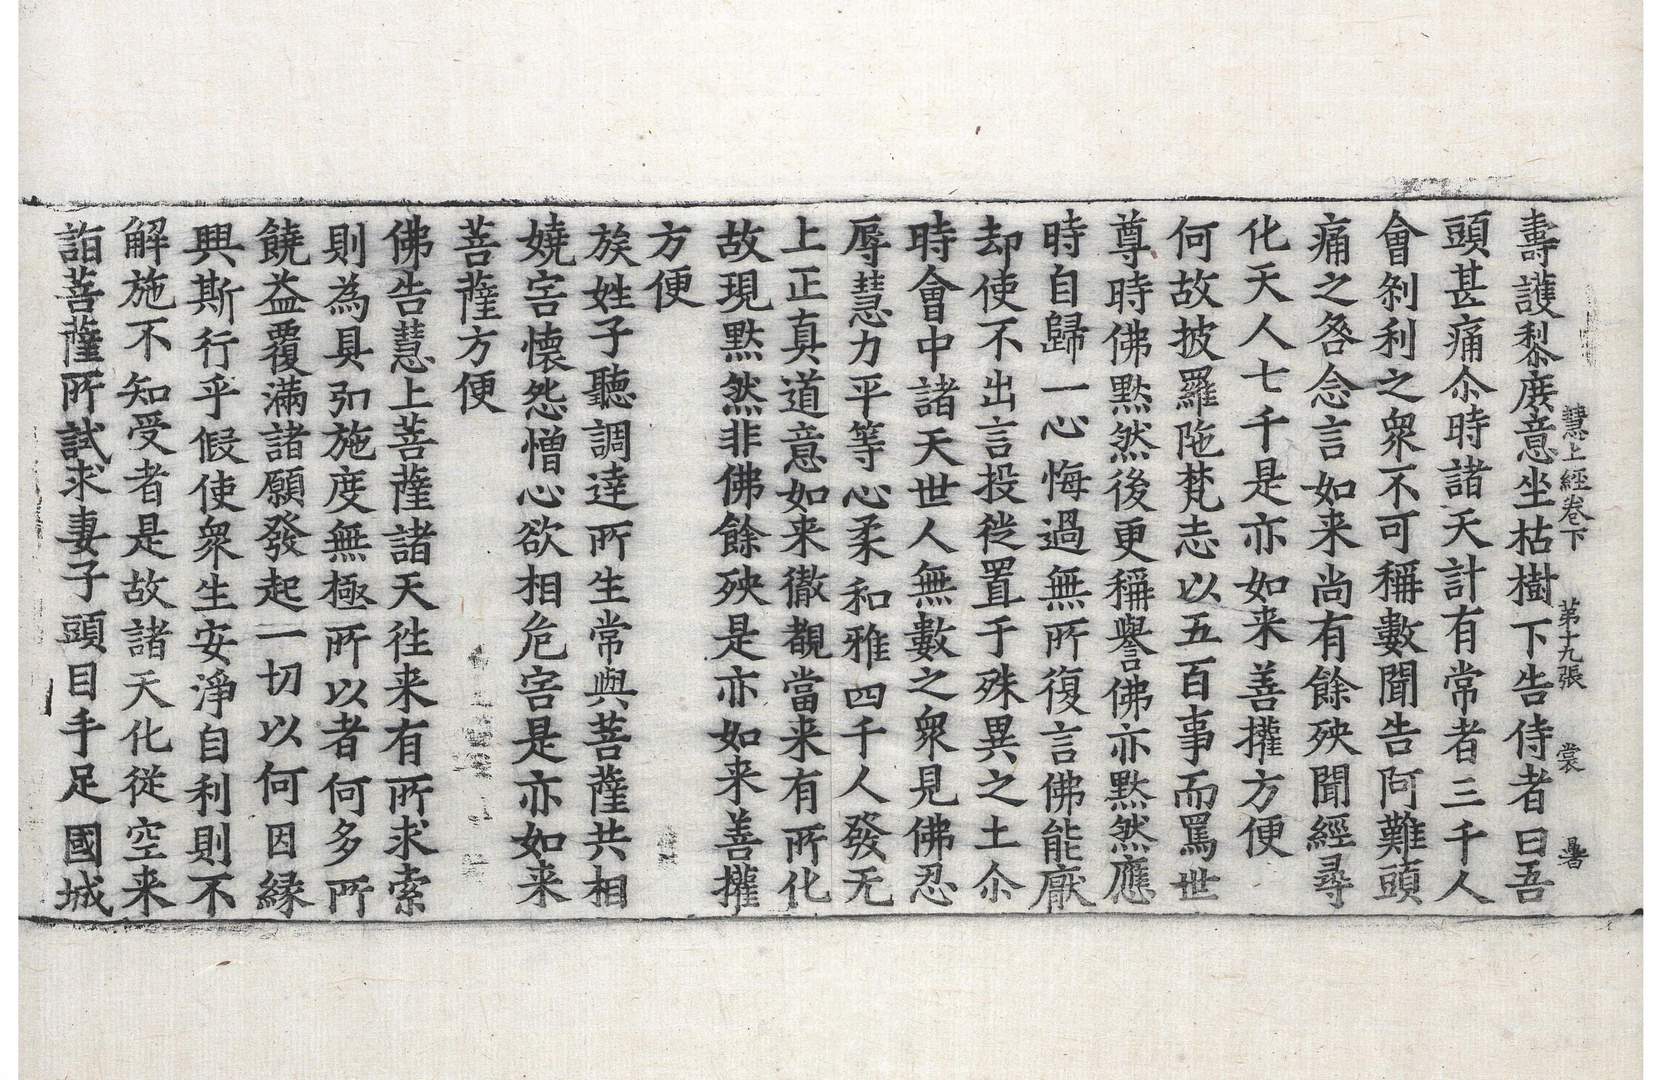 慧上經卷下 第十九張 裳
壽護黎庶意坐枯樹下告侍者曰吾
頭甚痛尒時諸天計有常者三千人
會剎利之衆不可稱數聞告阿難頭
痛之咎念言如来尚有餘殃聞經尋
化天人七千是亦如来善攉方便
何故披羅陁梵志以五百事而罵世
尊時佛黙然後更稱譽佛亦黙然應
時自歸一心悔過無所復言佛能厭
却使不出言投徃置于殊異之土尒
時會中諸天世人無數之衆見佛忍
辱慧力平等心柔和雅四千人發无
上正真道意如来徹覩當来有所化
故現黙然非佛餘殃是亦如来善攉
方便
族姓子聽調達所生常與菩薩共相
嬈害懷怨憎心欲相危害是亦如来
菩薩方便
佛告慧上菩薩諸天徃来有所求索
則為具弘施度無極所以者何多所
饒益覆滿諸願發起一切以何因縁
興斯行乎假使衆生安淨自利則不
解施不知受者是故諸天化從空来
詣菩薩所試求妻子頭目手足國城